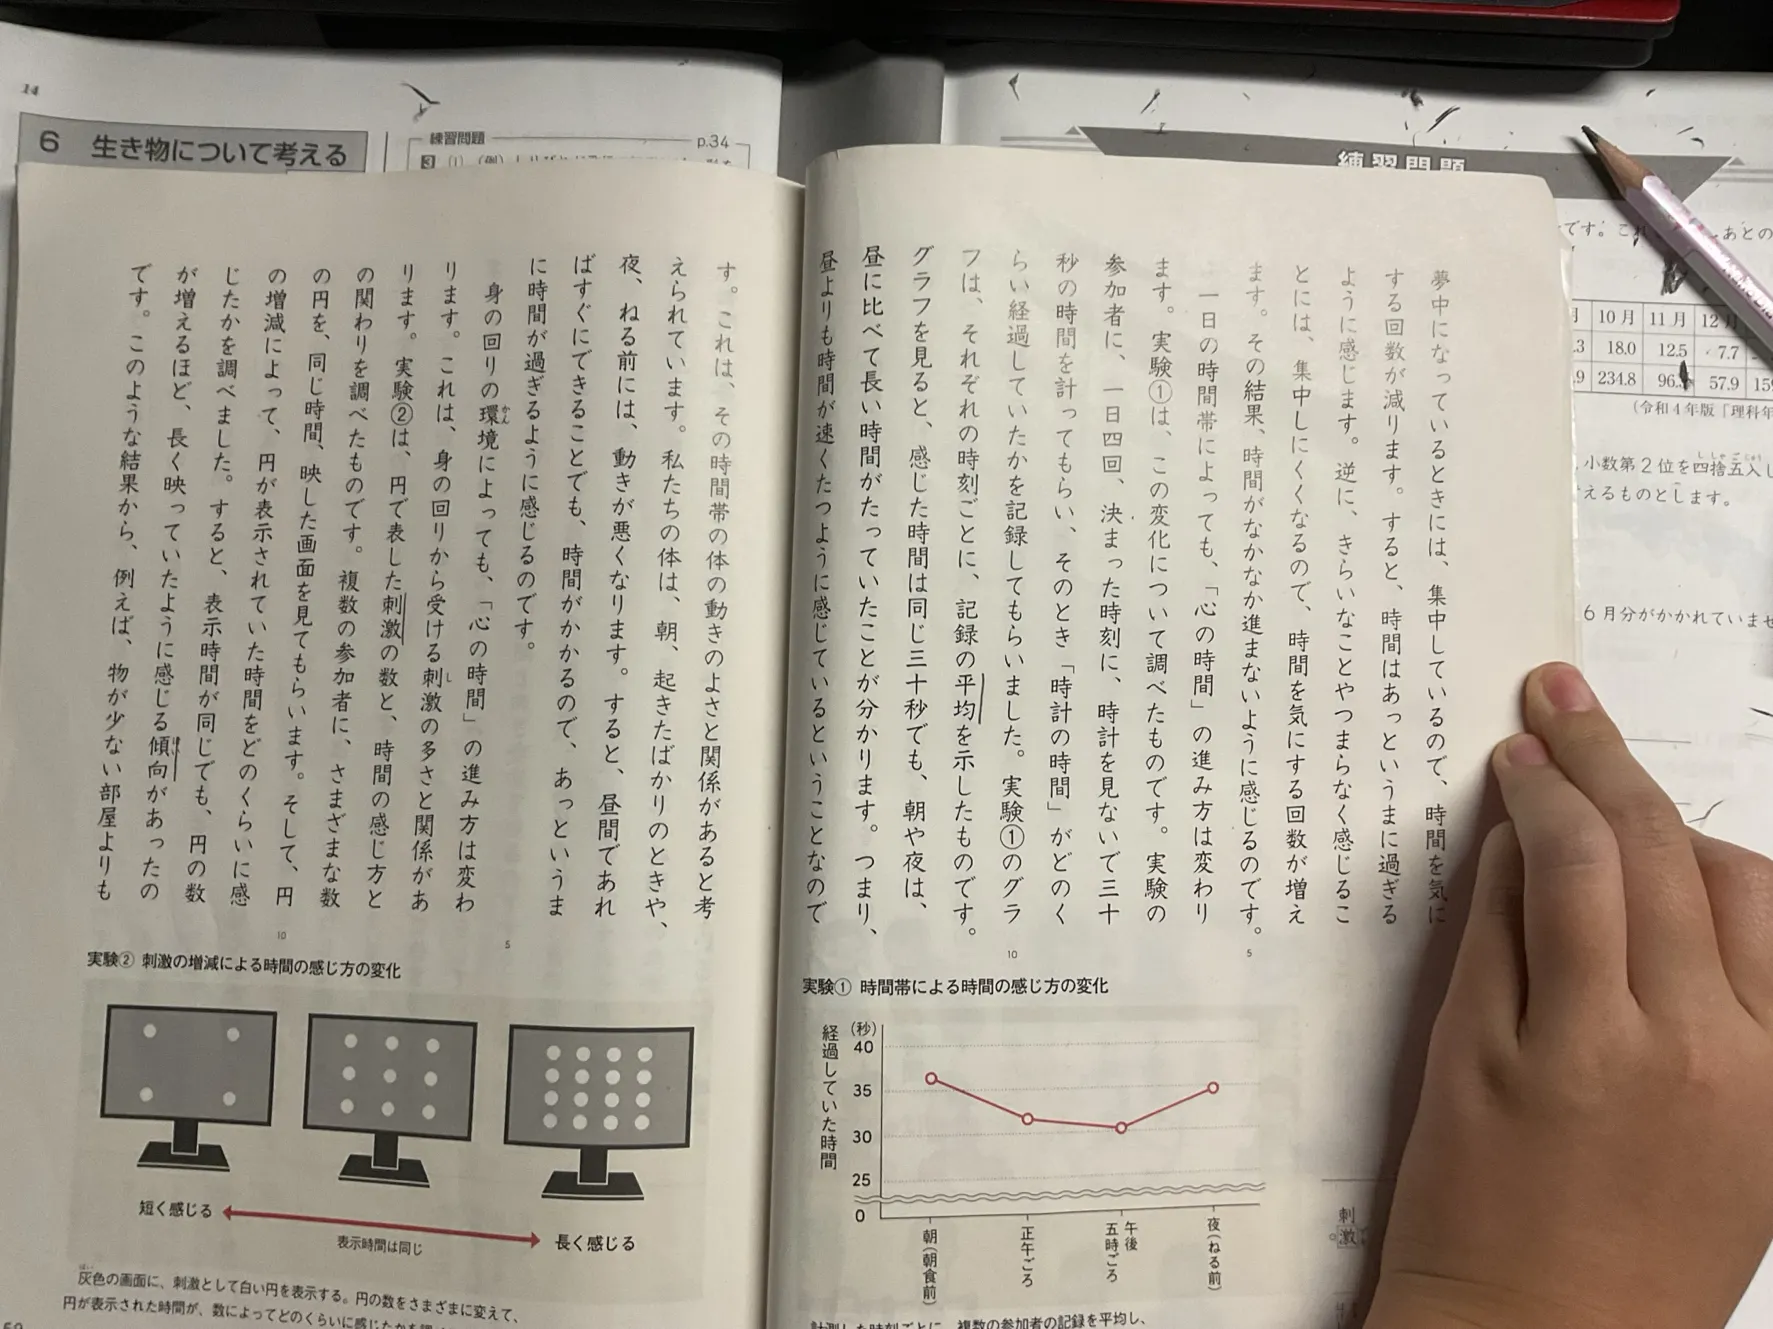 夢中になっているときには、集中しているので、時間を気に
する回数が減ります。すると、時間はあっというまに過ぎる
ように感じます。逆に、きらいなことやつまらなく感じるこ
とには、集中しにくくなるので、時間を気にする回数が増え
ます。その結果、時間がなかなか進まないように感じるのです。
一日の時間帯によっても、「心の時間」の進み方は変わり
ます。実験①は、この変化について調べたものです。実験の
参加者に、一日四回、決まった時刻に、時計を見ないで三十
秒の時間を計ってもらい、そのとき「時計の時間」がどのく
らい経過していたかを記録してもらいました。実験①のグラ
フは、それぞれの時刻ごとに、記録の平均を示したものです。
グラフを見ると、感じた時間は同じ三十秒でも、朝や夜は、
昼に比べて長い時間がたっていたことが分かります。つまり、
昼よりも時間が速くたつように感じているということなので
5
10
実験① 時間帯による時間の感じ方の変化
経過していた時間
(秒)
40
35
30
25
0
朝(朝食前)
正午ごろ
午後
五時ごろ
夜(ねる前)
複数の参加者の記録を平均し、
す。これは、その時間帯の体の動きのよさと関係があると考
えられています。私たちの体は、朝、起きたばかりのときや、
夜、ねる前には、動きが悪くなります。すると、昼間であれ
ばすぐにできることでも、時間がかかるので、あっというま
に時間が過ぎるように感じるのです。
身の回りの環境によっても、「心の時間」の進み方は変わ
ります。これは、身の回りから受ける刺激の多さと関係があ
ります。実験②は、円で表した刺激の数と、時間の感じ方と
の関わりを調べたものです。複数の参加者に、さまざまな数
の円を、同じ時間、映した画面を見てもらいます。そして、円
の増減によって、円が表示されていた時間をどのくらいに感
じたかを調べました。すると、表示時間が同じでも、円の数
が増えるほど、長く映っていたように感じる傾向があったの
です。このような結果から、例えば、物が少ない部屋よりも
5
10
実験② 刺激の増減による時間の感じ方の変化
短く感じる
表示時間は同じ
長く感じる
灰色の画面に、刺激として白い円を表示する。円の数をさまざまに変えて、
円が表示された時間が、数によってどのくらいに感じたかを
14
6 生き物について考える
練習問題
p.34
3 (1)
練習問題
です。
あとの
10月 11月 12
18.0 12.5 7.7
234.8 96. 57.9
(令和4年版『理科年
小数第2位を四捨五入し
えるものとします。
6月分がかかれていませ
刺
激